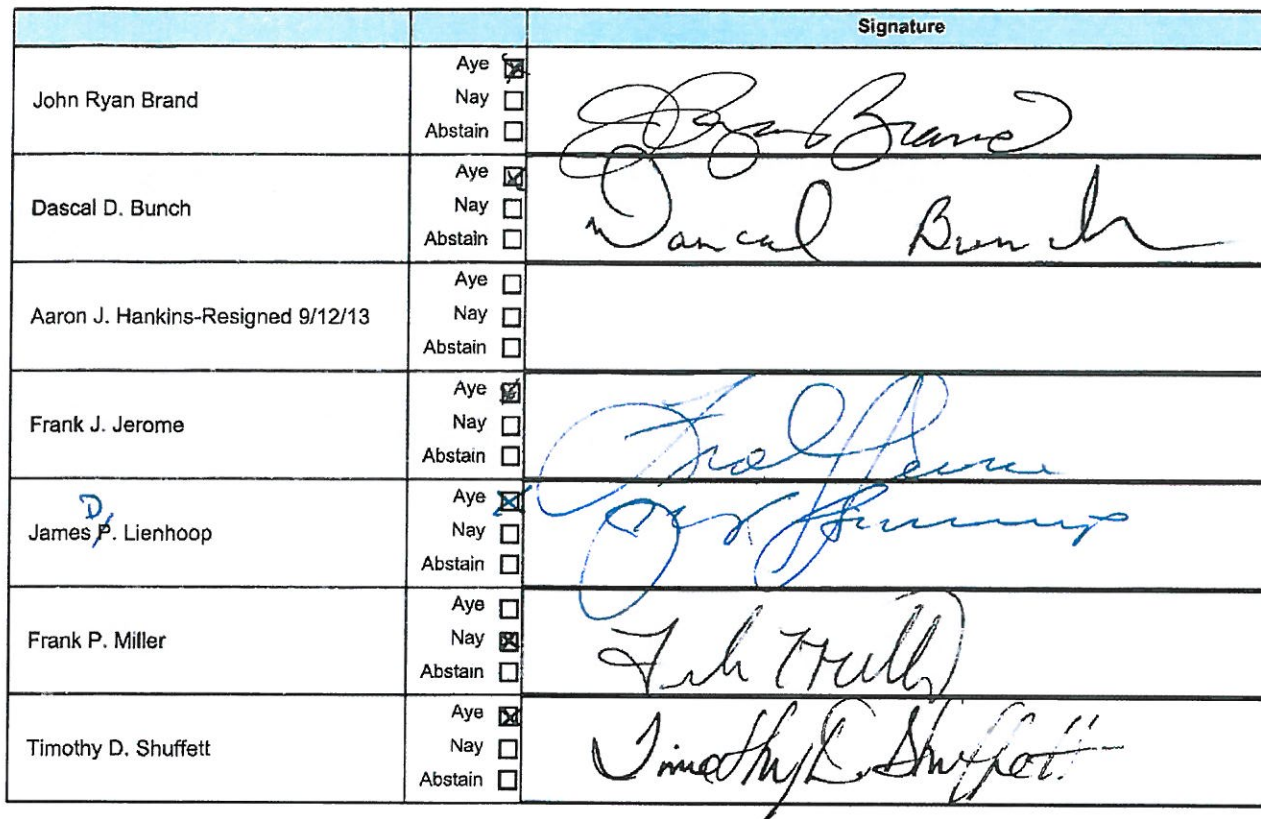 Signature
John Ryan Brand
Aye
Nay
Abstain
J Ryan Brand
Dascal D. Bunch
Aye
Nay
Abstain
Dascal Bunch
Aaron J. Hankins-Resigned 9/12/13
Aye
Nay
Abstain
Frank J. Jerome
Aye
Nay
Abstain
Frank Jerome
D.
James P. Lienhoop
Aye
Nay
Abstain
Frank P. Miller
Aye
Nay
Abstain
Frank Miller
Timothy D. Shuffett
Aye
Nay
Abstain
Timothy D. Shuffett